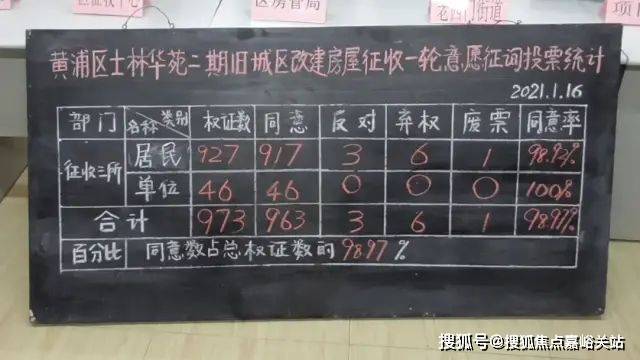 区房管局
老西门街道
黄浦区士林华苑二期旧城区改建房屋征收一轮意愿征询投票统计
2021.1.16
部门 名称 类别 权证数 同意 反对 弃权 废票 同意率
征收三所 居民 927 917 3 6 1 98.92%
单位 46 46 0 0 0 100%
合计 973 963 3 6 1 98.97%
百分比 同意数占总权证数的98.97%
搜狐号@搜狐焦点嘉峪关站